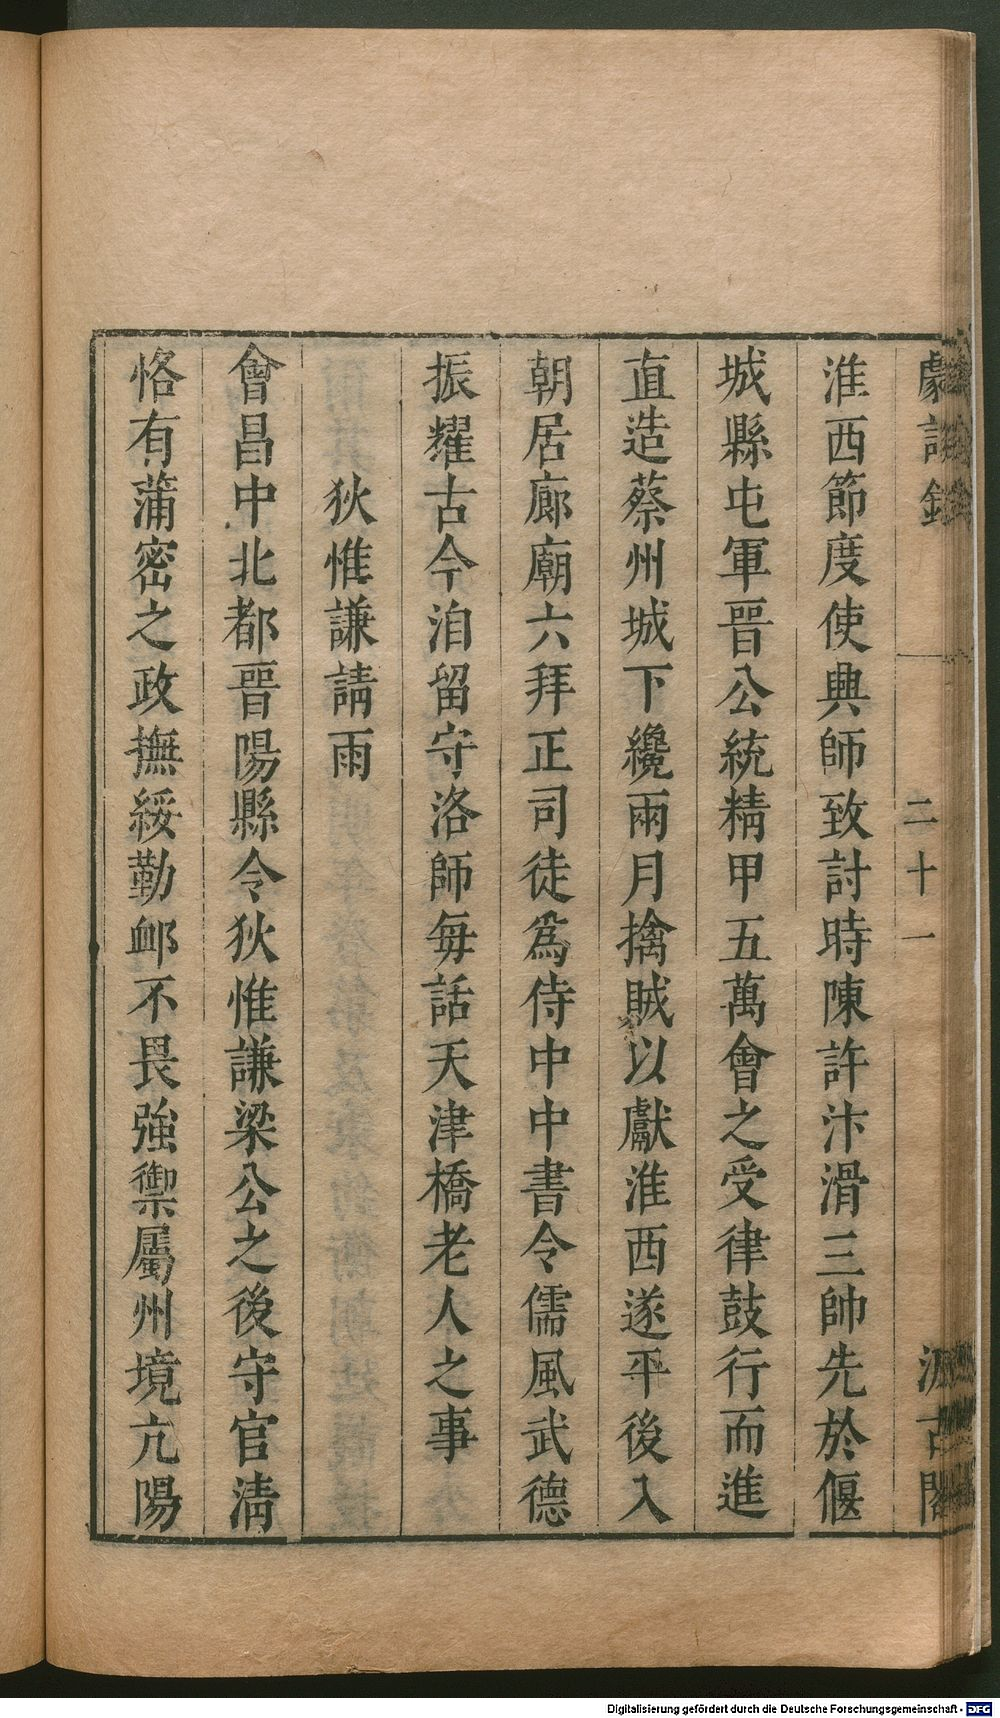 劇談錄 二十一 汲古閣
淮西節度使興師致討時陳許汴滑三帥先於偃
城縣屯軍晉公統精甲五萬會之受律鼓行而進
直造蔡州城下纔兩月擒賊以獻淮西遂平後入
朝居廊廟六拜正司徒爲侍中中書令儒風武德
振耀古今洎留守洛師每話天津橋老人之事
狄惟謙請雨
會昌中北都晉陽縣令狄惟謙梁公之後守官清
恪有蒲密之政撫綏勤䘏不畏強禦屬州境亢陽
Digitalisierung gefördert durch die Deutsche Forschungsgemeinschaft - DFG